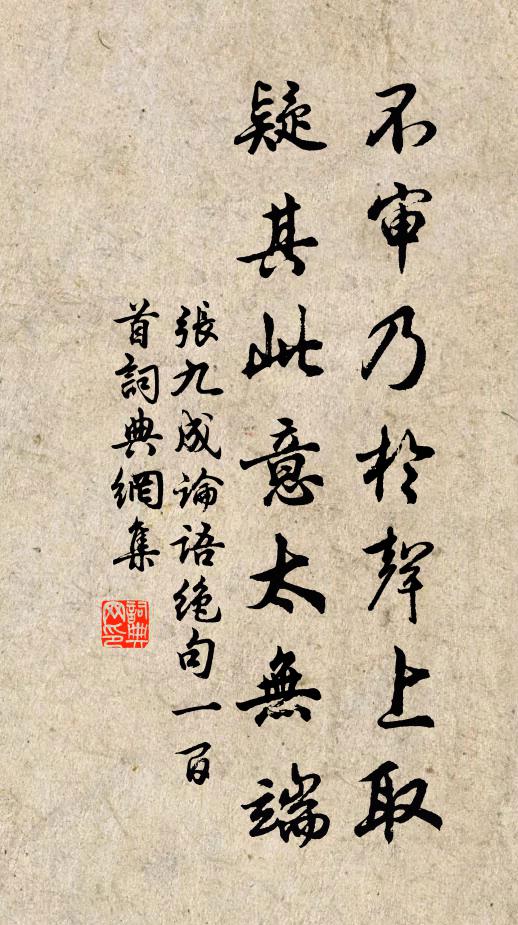 不审乃於聲上取
疑其此意太無端
張九成論語绝句一百
首詞典網集
詞典
网印